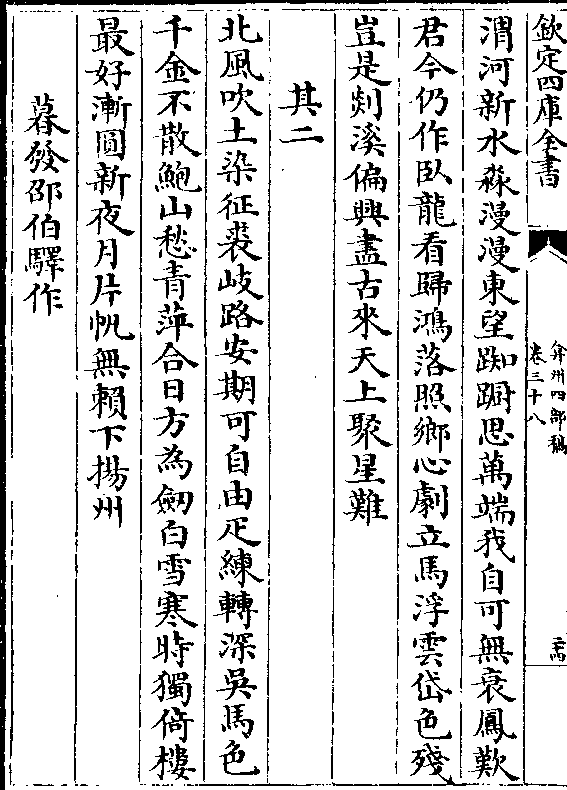 欽定四庫全書
弇州四部稿
卷三十八
渭河新水淼漫漫東望踟蹰思萬端我自可無衰鳳歎
君今仍作臥龍看歸鴻落照鄉心劇立馬浮雲岱色殘
豈是剡溪偏興盡古來天上聚星難
其二
北風吹土染征裘岐路安期可自由疋練轉深吳馬色
千金不散鮑山愁青萍合日方為劒白雪寒時獨倚樓
最好漸圓新夜月片帆無賴下揚州
暮發邵伯驛作